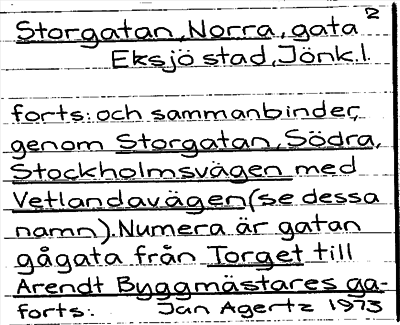 2
Storgatan, Norra, gata
Eksjö stad, Jönk.l.
forts: och sammanbinder,
genom Storgatan, Södra,
Stockholmsvägen med
Vetlandavägen (se dessa
namn). Numera är gatan
gågata från Torget till
Arendt Byggmästares ga-
forts: Jan Agertz 1973